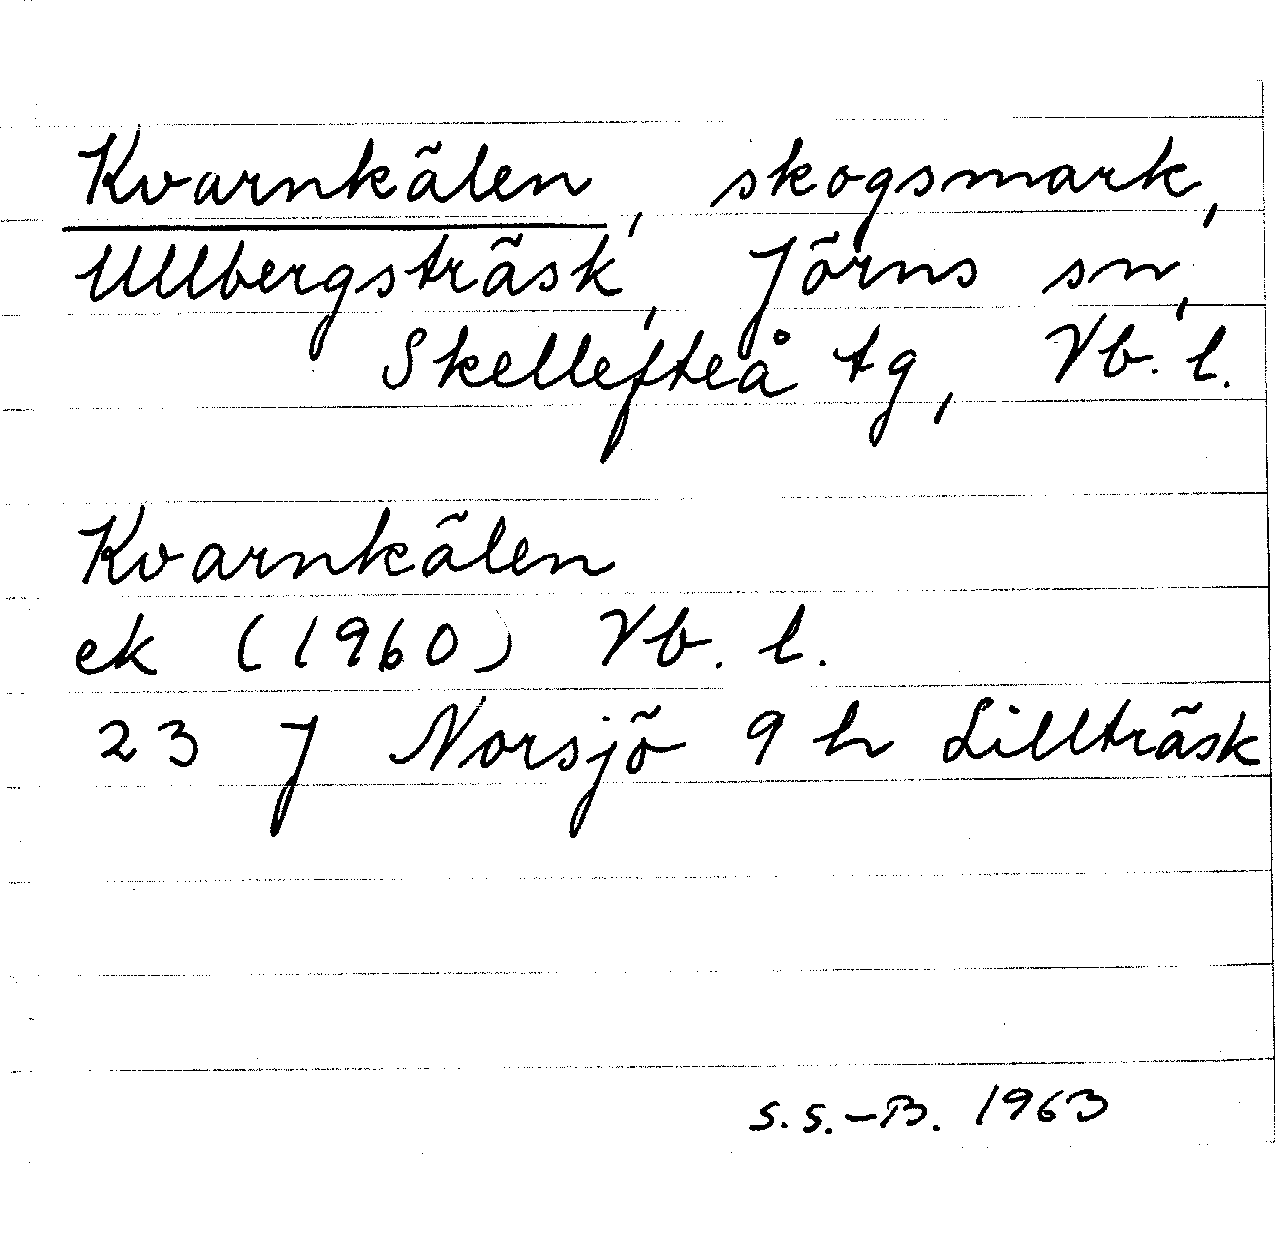 Kvarnkälen, skogsmark,
Ullbergsträsk, Jörns sn,
Skellefteå tg, Vb. l.
Kvarnkälen
ek (1960) Vb. l.
23 J Norsjö 9 h Lillträsk
S.S.-B. 1963